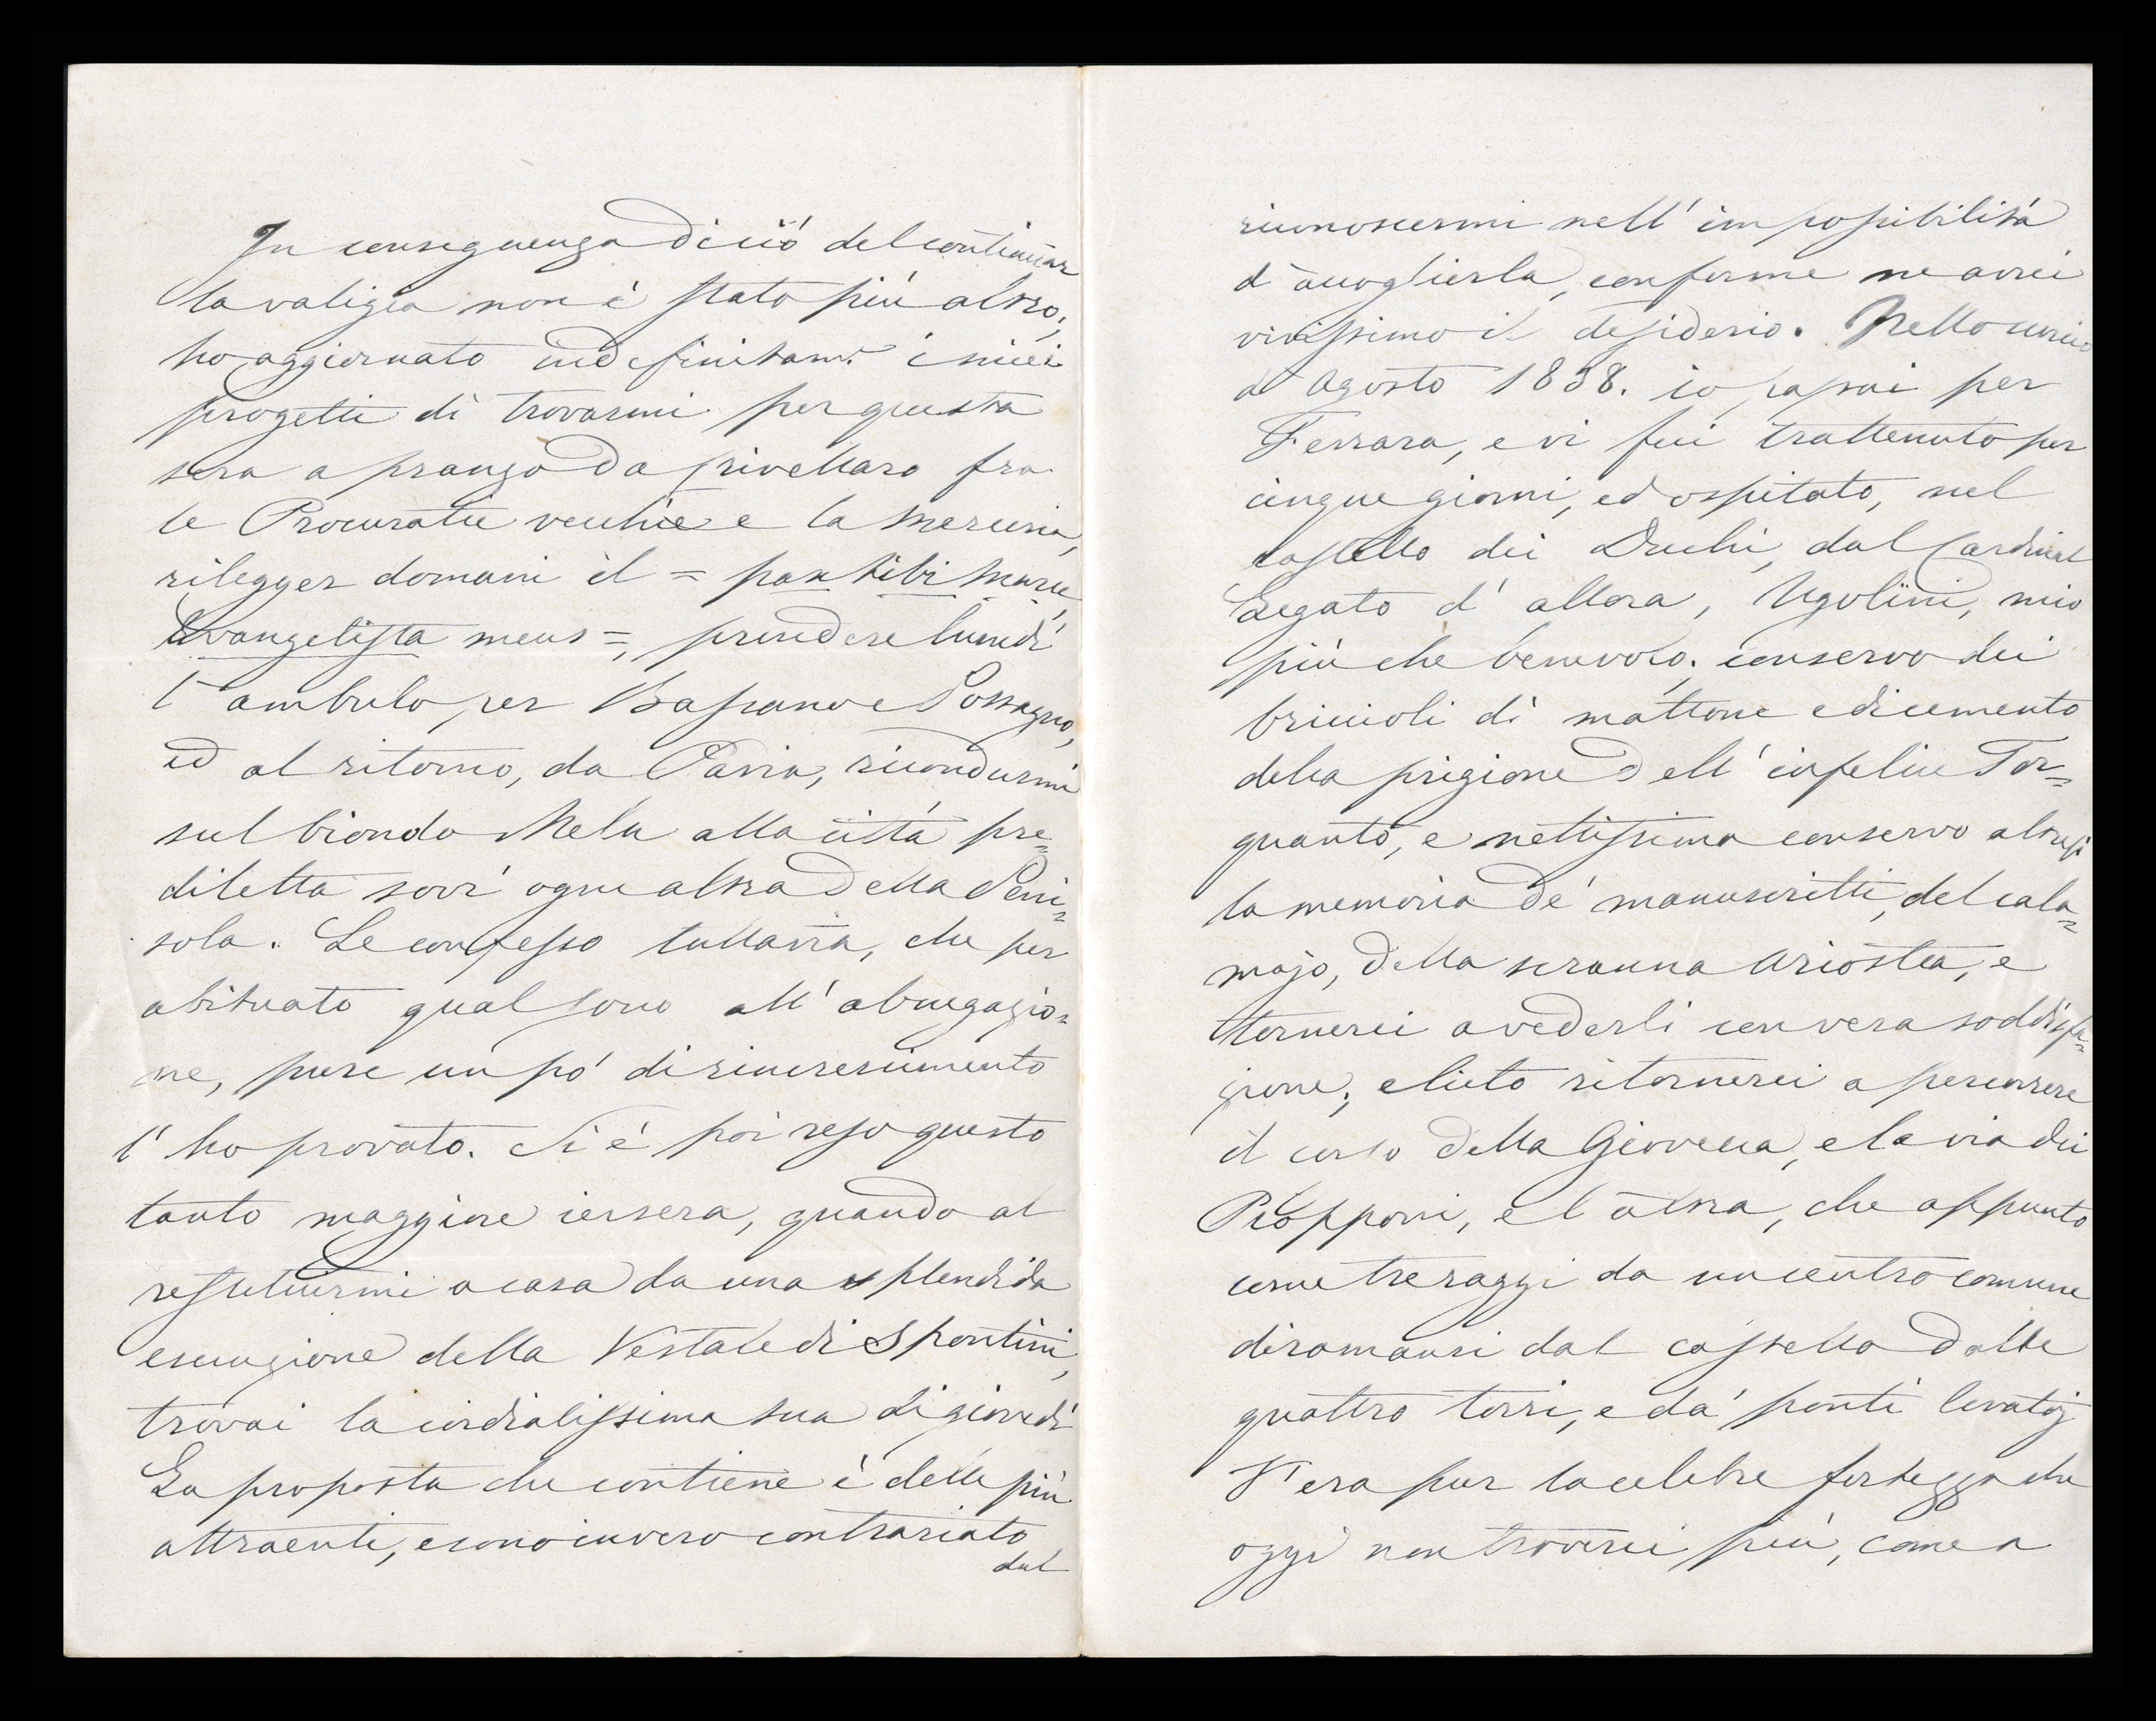 In conseguenza di ciò del continuar
la valigia non è stato più altro;
ho aggiornato indefinitam: i miei
progetti di trovarmi per questa
sera a pranzo da privellaro fra
le Procuratie vecchie e la Merceria,
rilegger domani il = pax tibi Marce
Evangelista meus =, prendere lunedì
l'ambulo per Bassano e Possagno,
ed al ritorno, da Pavia, ricondurmi
sul biondo Mela alla città pre=
diletta sovr' ogni altra della Peni=
sola. Le confesso tuttavia, che per
abituato qual sono all' abnegazio=
ne, pure un pò di rincrescimento
l' ho provato. Si è poi reso questo
tanto maggiore iersera, quando al
restituirmi a casa da una splendida
esecuzione della Vestale di Spontini,
trovai la cordialissima sua di giovedì
La proposta che contiene è delle più
attraenti, e sono invero contrariato
dal
riconoscermi nell' impossibilità
d' accoglierla, conforme ne avrei
vivissimo il desiderio. Nello scorcio
d' Agosto 1838. io passai per
Ferrara, e vi fui trattenuto per
cinque giorni, ed ospitato, nel
castello dei Duchi, dal Cardinal
Legato d' allora, Ugolini, mio
più che benevolo; conservo dei
bricioli di mattone e di cemento
della prigione dell' infelice Tor=
quanto, e nettissima conservo altresì
la memoria de' manuscritti, del cala=
majo, della scranna Ariostea, e
tornerei a vederli con vera soddisfa=
zione; e lieto ritornerei a percorrere
il corso della Giovecca, e la via dei
Piopponi, e l' altra, che appunto
come tre raggi da un centro comune
diramansi dal castello dalle
quattro torri, e da' ponti levatoj
V' era pur la celebre fortezza che
oggi non troverei più, come a